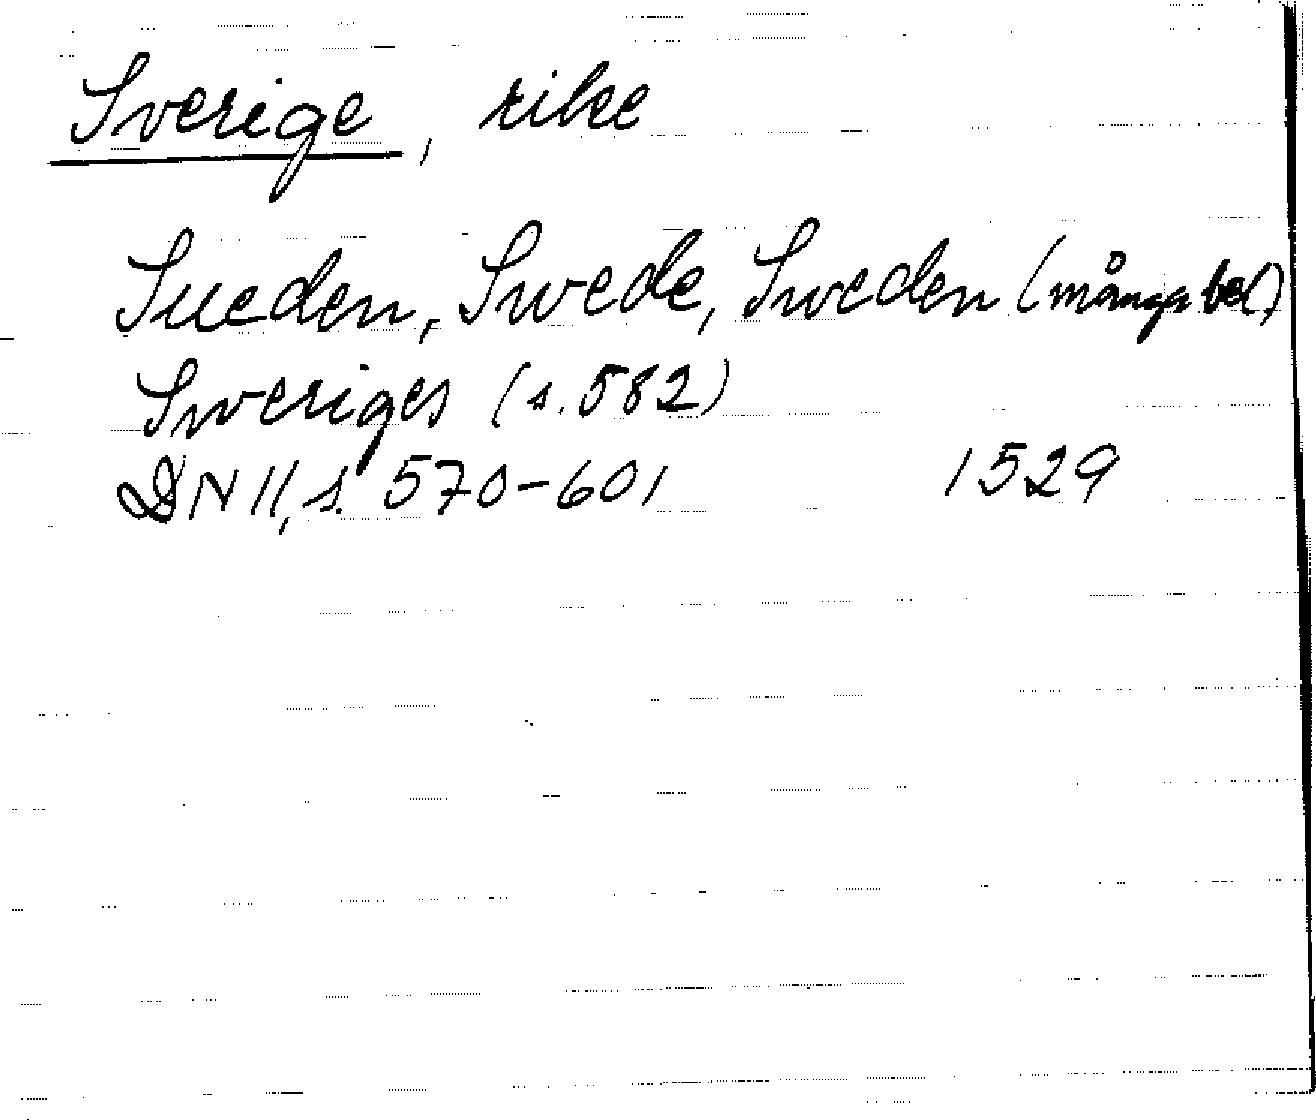 Sverige, rike
Sueden, Swede, Sweden (många bel)
Sweriges (s. 582)
DN II, s. 570-601 1529